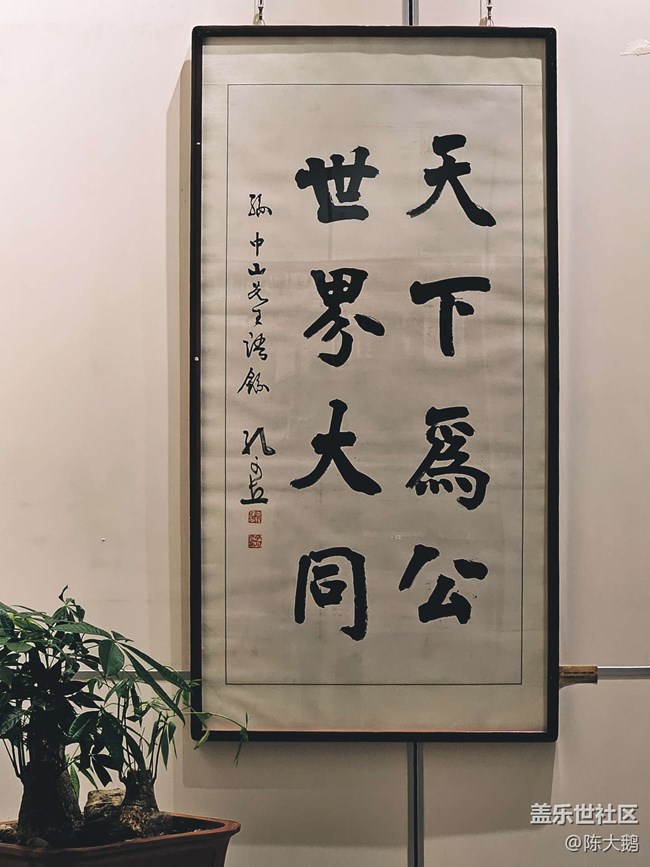 天下為公
世界大同
孫中山先生語錄
盖乐世社区
@陈大鹅